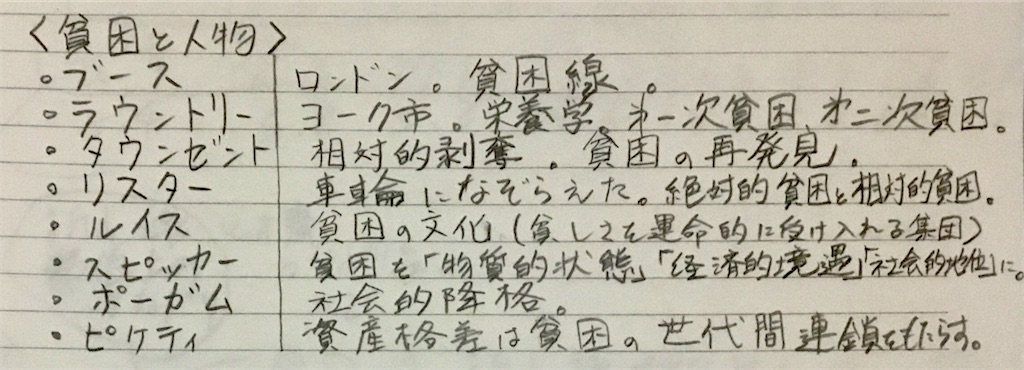 〈貧困と人物〉
・ブース ロンドン。貧困線。
・ラウントリー ヨーク市。栄養学。第一次貧困、第二次貧困。
・タウンゼント 相対的剥奪。貧困の再発見。
・リスター 車輪になぞらえた。絶対的貧困と相対的貧困。
・ルイス 貧困の文化(貧しさを運命的に受け入れる集団)
・スピッカー 貧困を「物質的状態」「経済的境遇」「社会的地位」に。
・ポーガム 社会的降格。
・ピケティ 資産格差は貧困の世代間連鎖をもたらす。